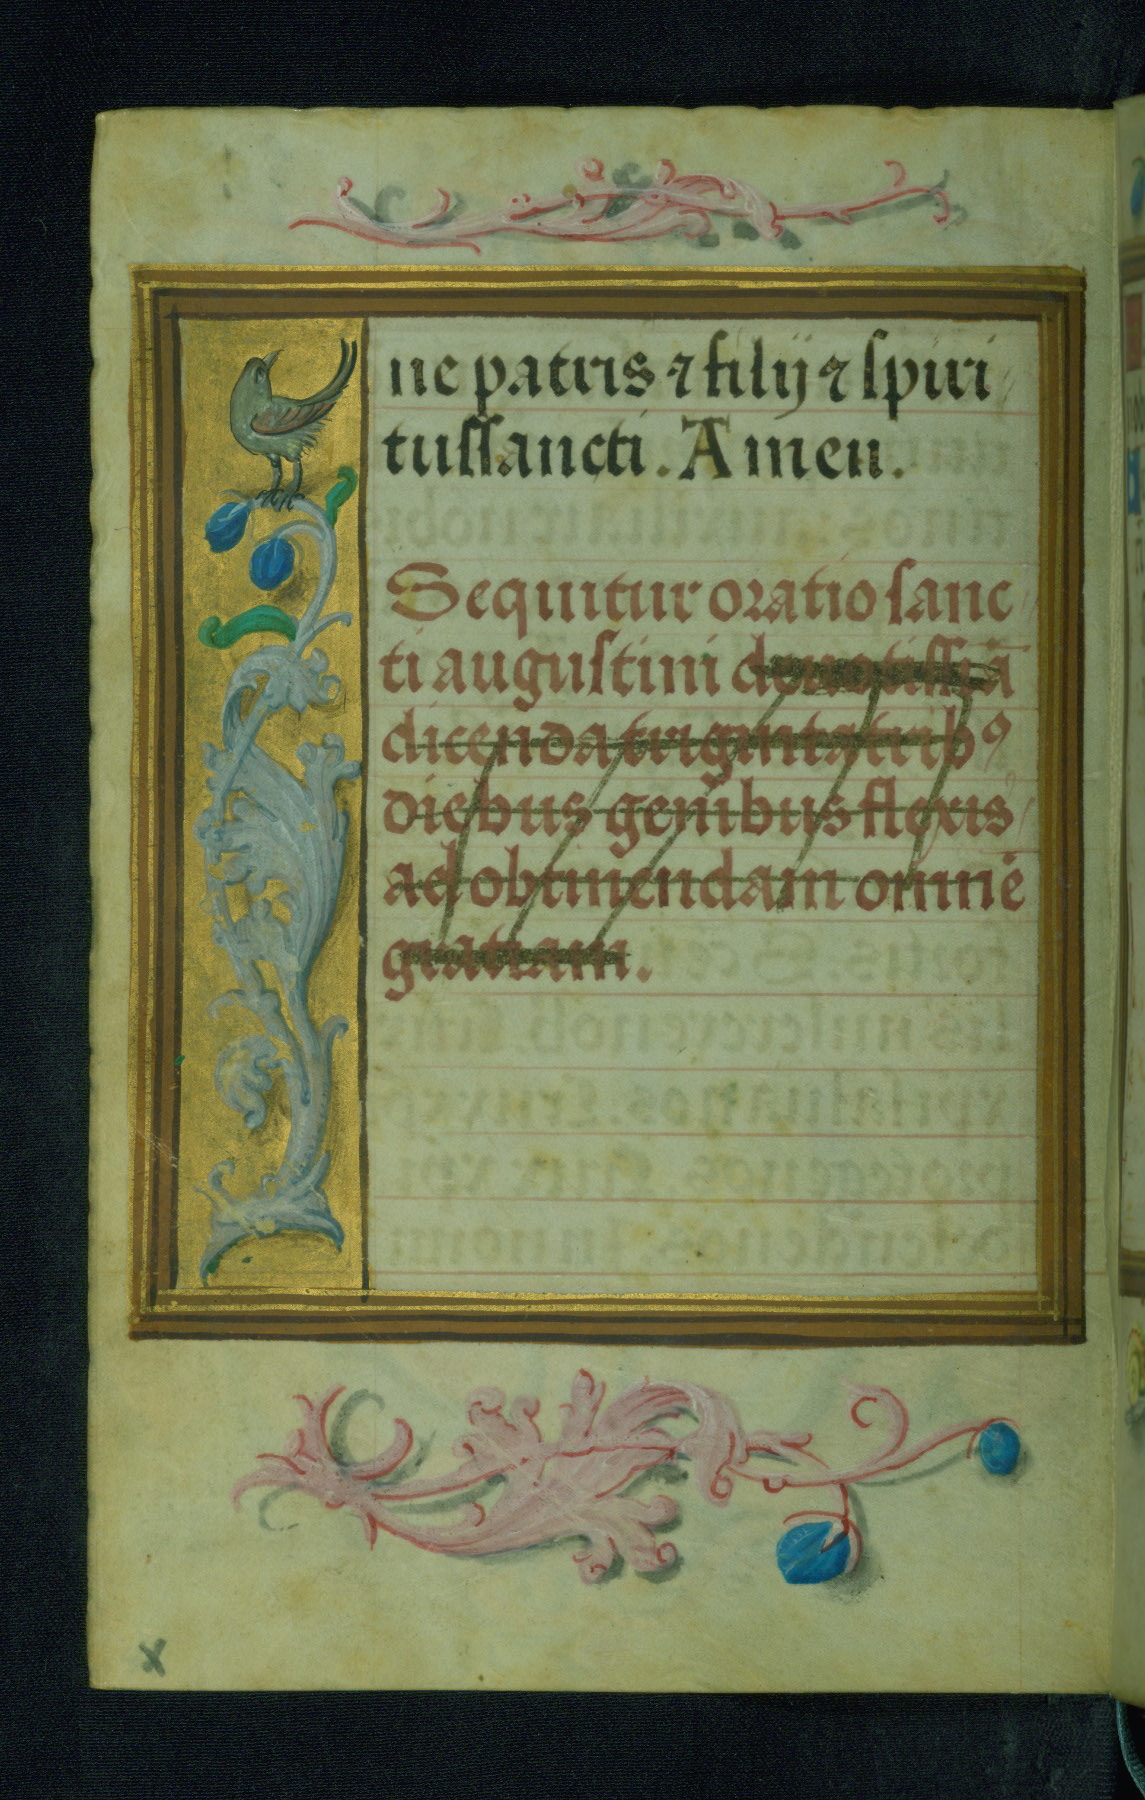 ne patris ⁊ filij ⁊ spiri
tussancti. Amen.
Sequitur oratio sanc
ti augustini deuotissiā
dicenda triginta trib⁹
diebus genibus flexis
ad obtinendam omnē
gratiam.
x